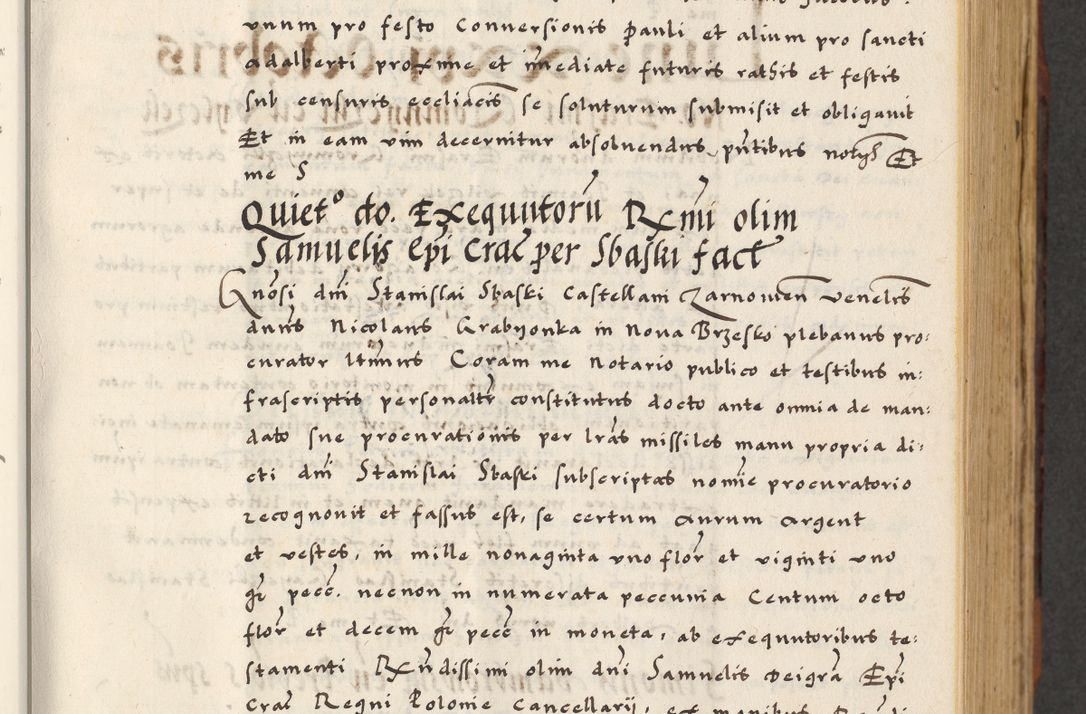 unum pro festo Conversionis Pauli et alium pro sancti
Adalberti proxime et imediate futuris rathis et festis
sub censuris eccliacis se soluturum submisit et obligavit
Et in eam vim decernitur absolvendus pntibus notys Et
me S
Quieto do. Exequutoru Rxmi olim
Samuelis Epi Crac per Sbaski fact
Gnosi dni Stanislai Sbaski Castellani Zarnowen venelis
dnus Nicolaus Grabyonka in Nova Brzesko plebanus pro:
curator ltimus Coram me Notario publico et testibus in:
frascriptis personaltr constitutus docto ante omnia de man:
dato sue procurationis per lras missiles manu propria di:
cti dni Stanislai Sbaski subscriptas nomie procuratorio
recognovit et fassus est, se certum aurum argent
et vestes, in mille nonaginta uno flor et viginti uno
gr pecc. necnon in numerata peccunia Centum octo
flor et decem gr pecc in moneta, ab exequutoribus te:
stamenti Rxndissimi olim dni Samuelis Dei gra Epi
Crac Regni Polonie Cancellarij, ex manibus